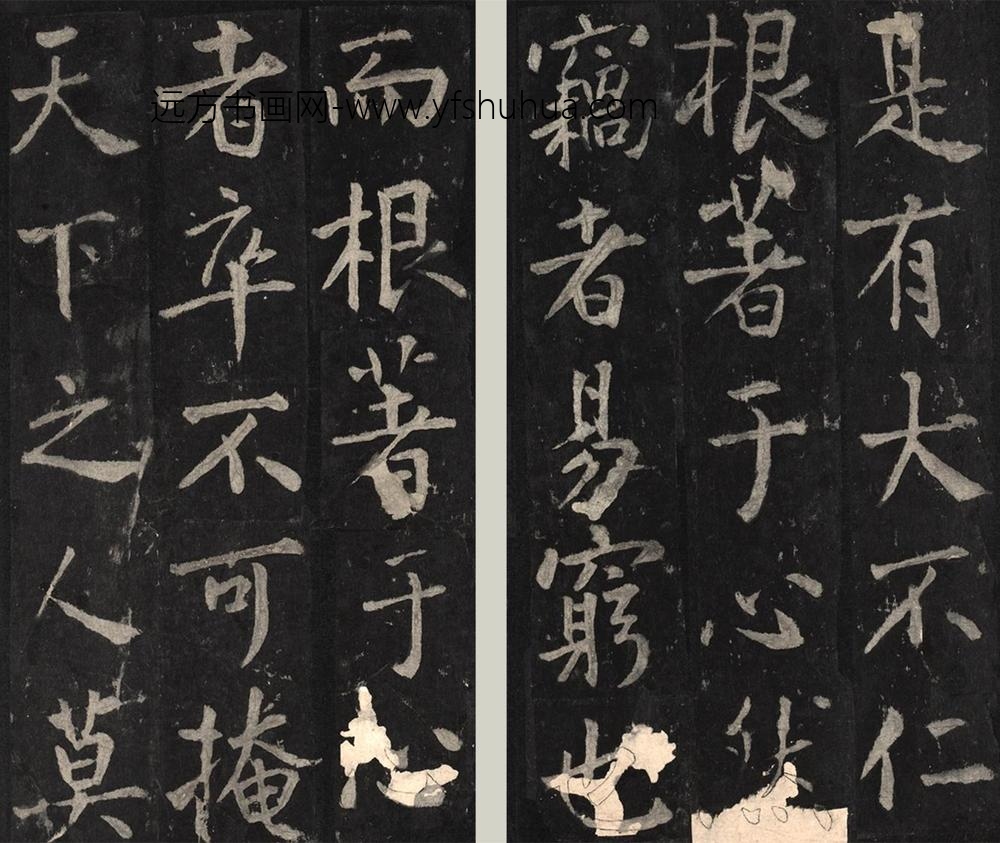 是有大不仁
根著于心
竊者易窮也
而根著于心
者卒不可掩
天下之人莫
远方书画网-www.yfshuhua.com